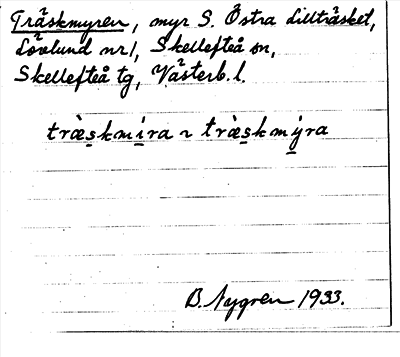 Träskmyren, myr S. Östra Lillträsket,
Lövlund nr 1, Skellefteå sn,
Skellefteå tg, Västerb. l.
träskmira ~ träskmýra
B. Nygren 1933.